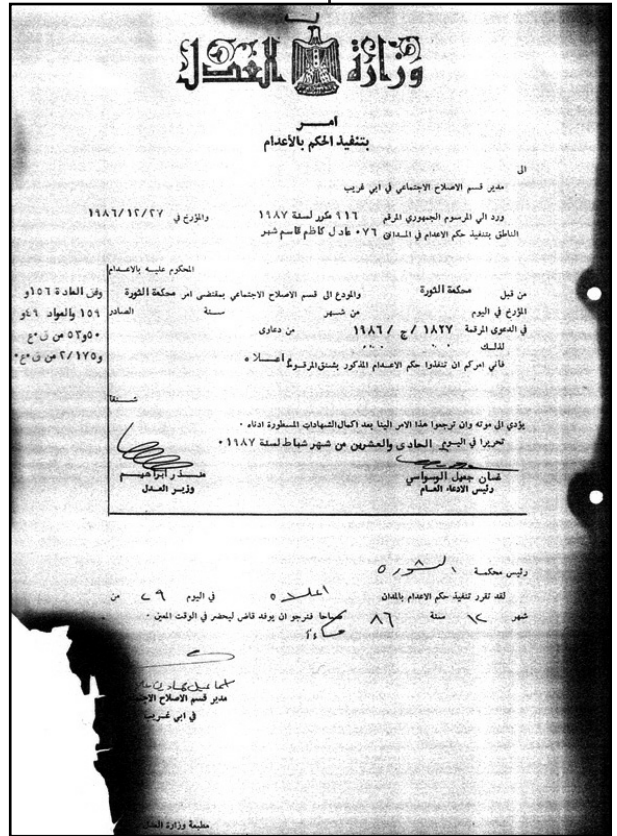 وزارة العدل
امـــر
بتنفيذ الحكم بالأعدام
الى
مدير قسم الاصلاح الاجتماعي في ابي غريب
ورد الي المرسوم الجمهوري المرقم ٩١٦ مكرر لسنة ١٩٨٧ والمؤرخ في ١٩٨٦/١٢/٢٧
الناطق بتنفيذ حكم الاعدام في المـدان ٠٧٦ عادل كاظم قاسم شبر
المحكوم عليـه بالاعـدام
من قبل محكمة الثورة والمودع الى قسم الاصلاح الاجتماعي بمقتضى امر محكمة الثورة وفق المادة ١٥٦ و
المؤرخ في اليوم من شـهر سـنة الصادر ١٥٩ والمواد ٤٩ و
في الدعوى المرقمة ١٨٢٧ / ج / ١٩٨٦ من دعاوى ٥٠ و٥٣ من ق٠ع
لذلـك و٢/١٧٥ من ق٠ع٠
فأني امركم ان تنفذوا حكم الاعـدام المذكور بشنق المرقـوم اعـلا ه
شـنقا
يؤدي الى موته وان ترجعوا هذا الامر الينا بعد اكمال الشهادات المسطورة ادناه ٠
تحريرا في اليـوم الحادى والعشرين من شهر شباط لسنة ١٩٨٧ ٠
غسان جميل الوسواسي منـذر ابراهيـم
رئيس الادعاء العـام وزيـر العـدل
رئيس محكمـة الـثورة
لقد تقرر تنفيذ حكم الاعدام بالمدان اعلاه في اليوم ٢٩ من
شهر ١٢ سنة ٨٦ صباحا فنرجو ان يوفد قاض ليحضر في الوقت المعين ٠
مساءً
مدير قسم الاصلاح
في ابي غـريب
مطبعة وزارة العدل